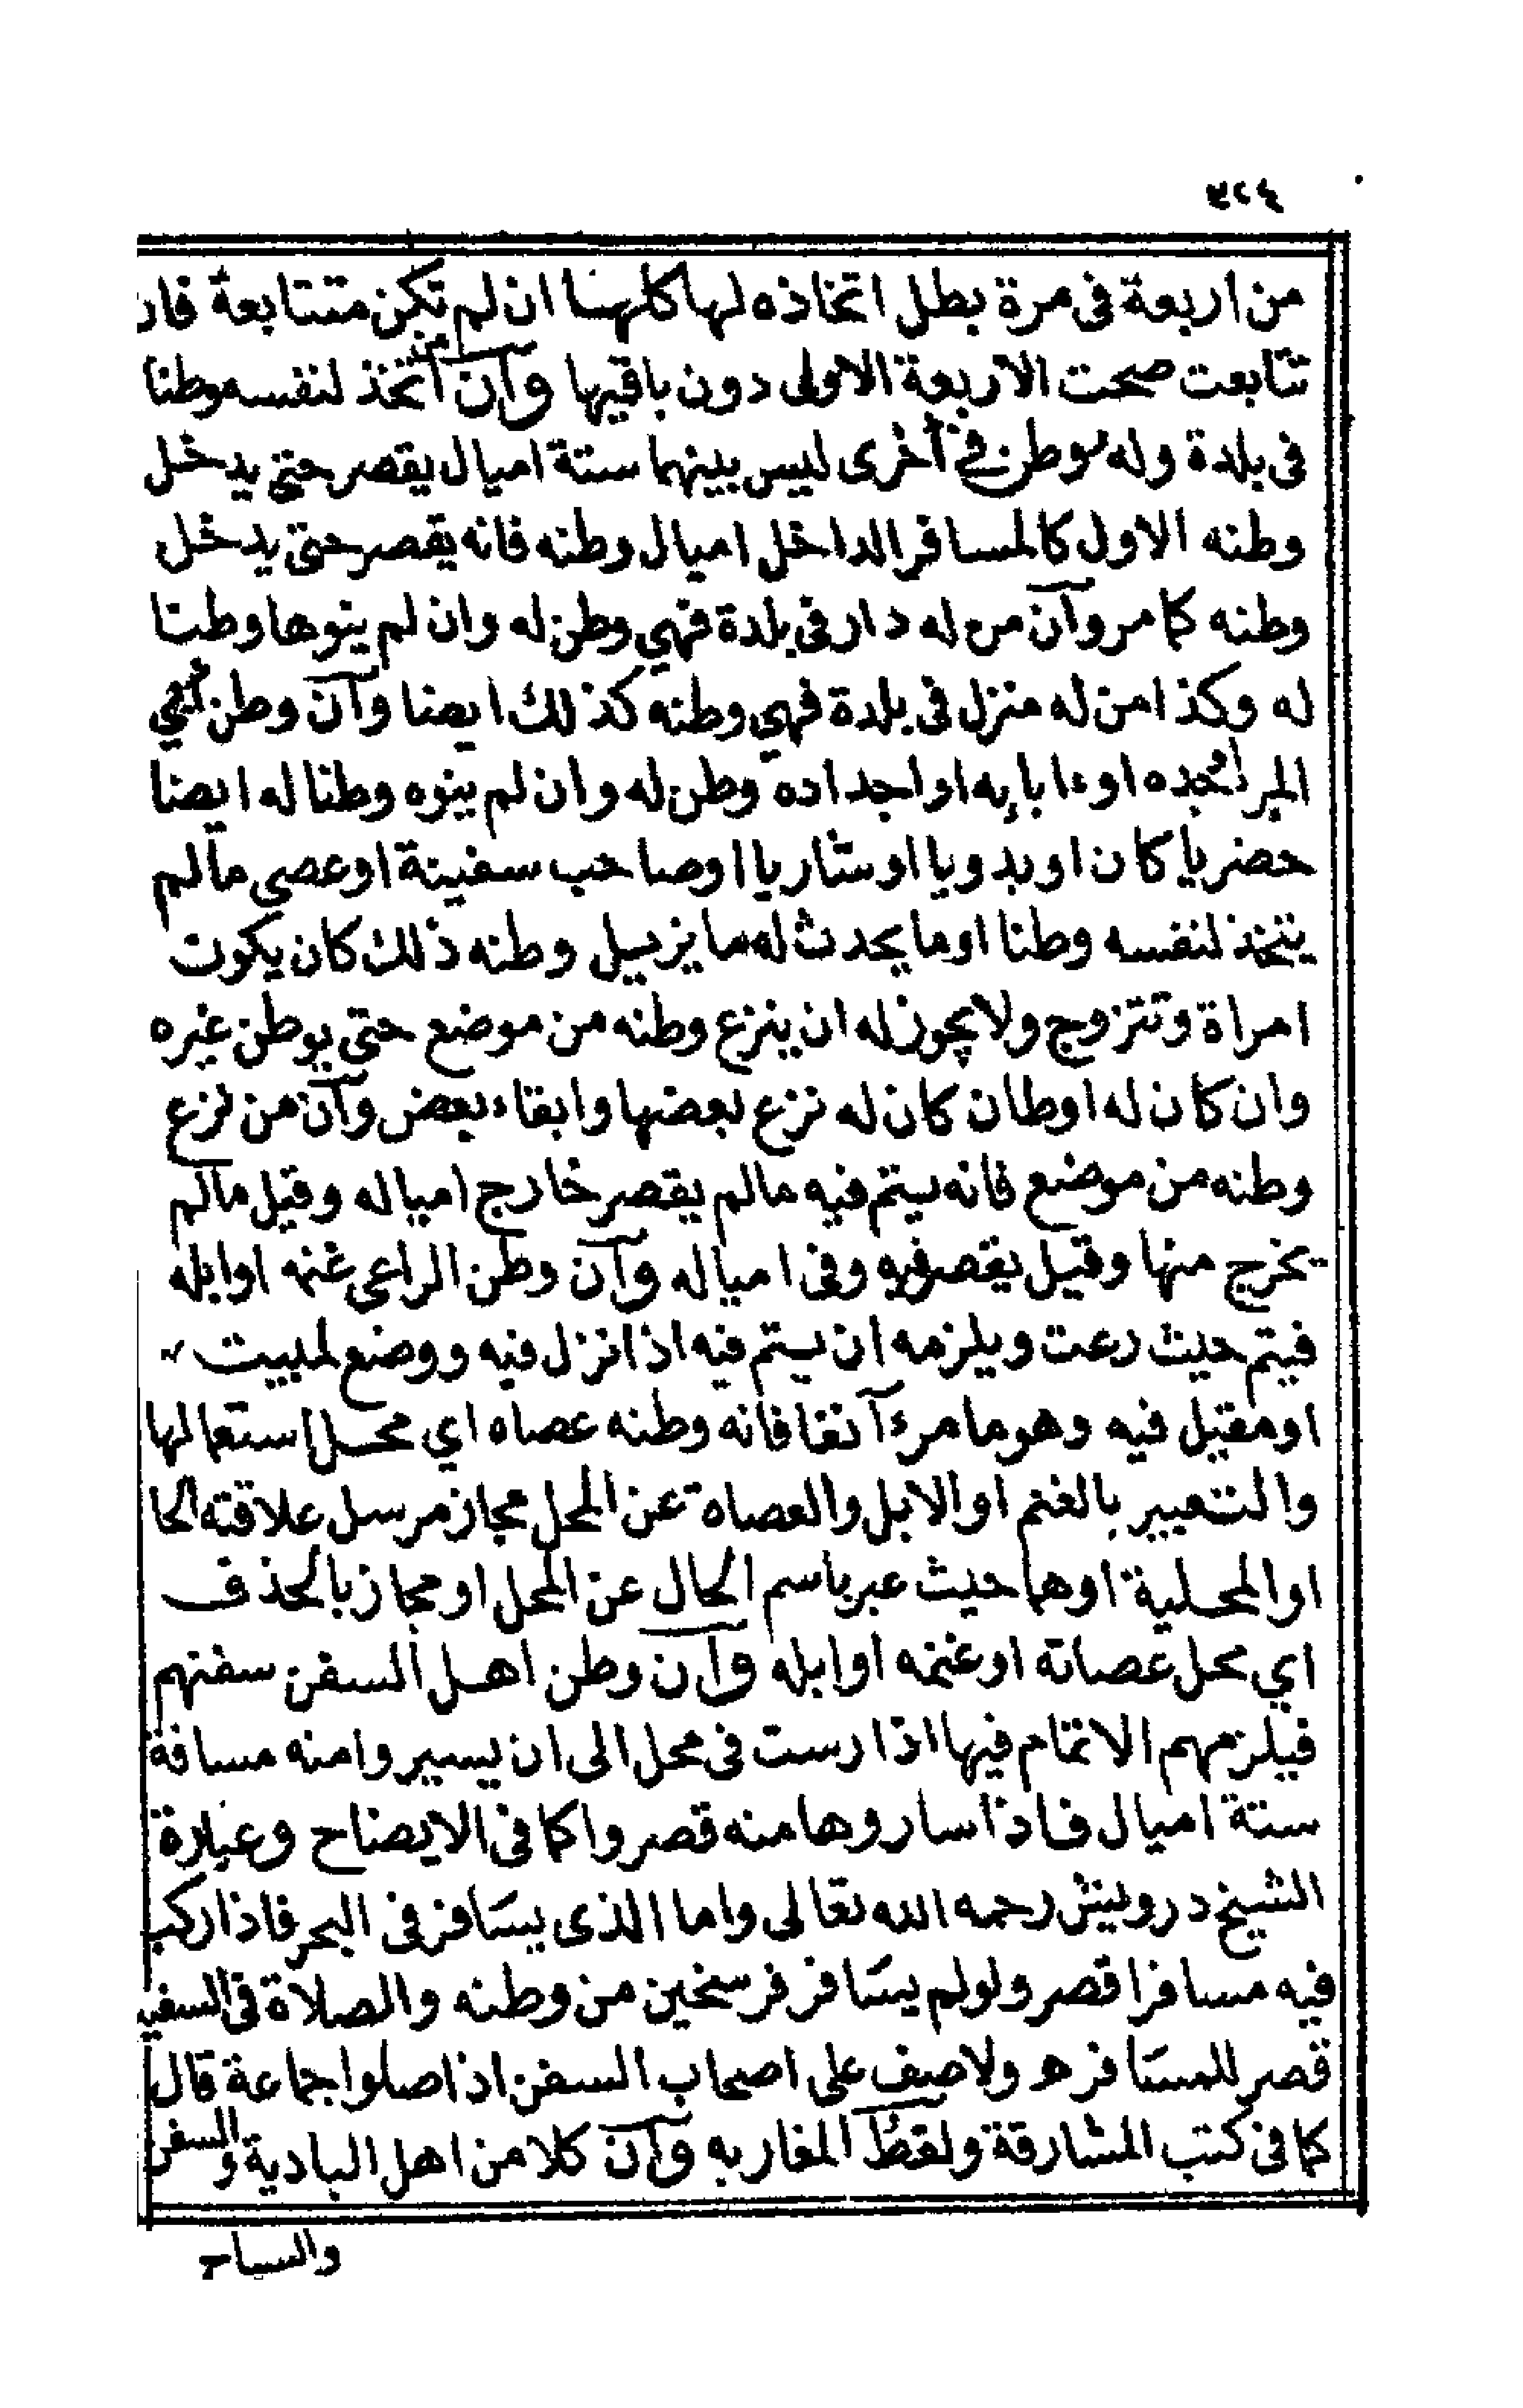 من اربعة فى مرة بطل اتخاذه لها كلها ان لم تكن متتابعة فان
تتابعت صحت الاربعة الاولى دون باقيها وان من اتخذ لنفسه وطنا
فى بلدة وله وطن في أخرى ليس بينهما ستة اميال يقصر حتى يدخل
وطنه الاول كالمسافر الداخل اميال وطنه فانه يقصر حتى يدخل
وطنه كما مر وان من له دار فى بلدة فهي وطن له وان لم ينوها وطنا
له وكذا من له منزل فى بلدة فهي وطنه كذلك ايضا وان وطن
المرء جده او ءابايه او اجداده وطن له وان لم ينوه وطنا له ايضا
حضريا كان او بدويا او شاريا اوصاحب سفينة او عصى مالم
يتخذ لنفسه وطنا او ما يحدث له ما يزيل وطنه ذلك كان يكون
امراة وتتزوج ولا يجوز له ان ينزع وطنه من موضع حتى يوطن غيره
وان كان له اوطان كان له نزع بعضها وابقاء بعض وان من نزع
وطنه من موضع فانه يتم فيه مالم يقصر خارج امياله وقيل مالم
يخرج منها وقيل يقصر فيه وفى امياله وان وطن الراعى غنمه اوابله
فيتم حيث رعت ويلزمه ان يتم فيه اذا نزل فيه ووضع لمبيت
او مقيل فيه وهو ما مر ءانفا فانه وطنه عصاه اي محل استعمالها
والتعبير بالغنم او الابل والعصاة عن المحل مجاز مرسل علاقته الحا
او المحلية اوهما حيث عبر باسم الحال عن المحل او مجاز بالحذف
اي محل عصاته او غنمه اوابله وان وطن اهل السفن سفنهم
فيلزمهم الاتمام فيها اذا رست فى محل الى ان يسيروا منه مسافة
ستة اميال فاذا ساروها منه قصروا كما فى الايضاح وعبارة
الشيخ درويش رحمه الله تعالى واما الذى يسافر فى البحر فاذا ركب
فيه مسافرا قصر ولو لم يسافر فرسخين من وطنه والصلاة فى السفين
قصر للمسافر هـ ولا صيف على اصحاب السفن اذا صلوا جماعة قال
كما فى كتب المشارقة ولقط المغاربه وان كلا من اهل البادية والسفن
والسياح